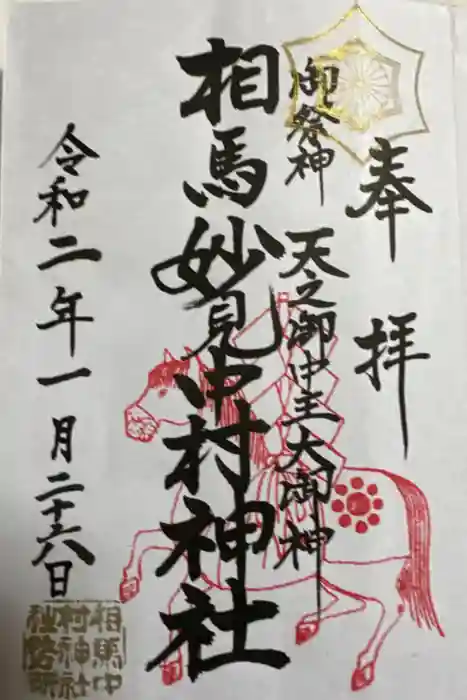 奉拝
御祭神 天之御中主大御神
相馬妙見中村神社
令和二年一月二十六日
相馬中村神社社務所